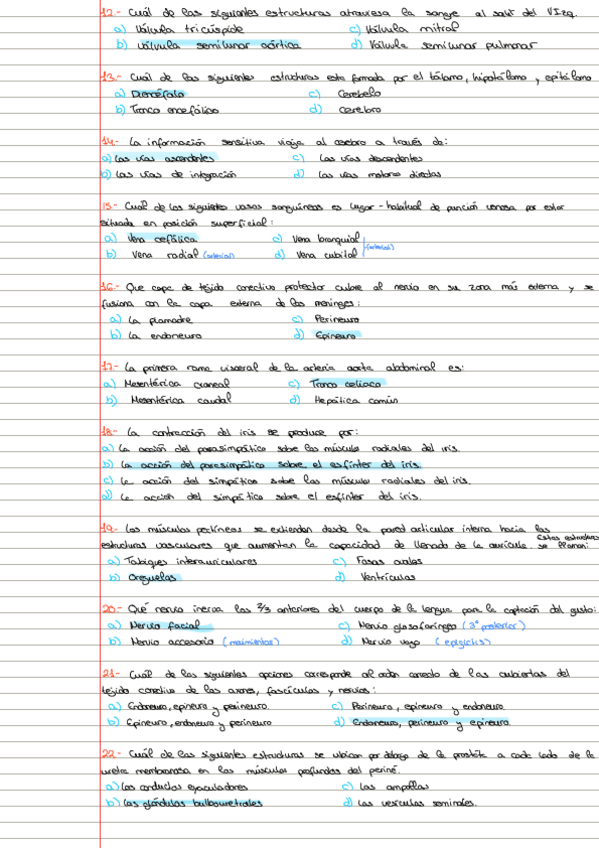 12.- Cuál de las siguientes estructuras atraviesa la sangre al salir del VIzq.
a) Válvula tricúspide c) Válvula mitral
b) válvula semilunar aórtica d) Válvula semilunar pulmonar
13.- Cuál de las siguientes estructuras esta formada por el tálamo, hipotálamo y epitálamo
a) Diencéfalo c) Cerebelo
b) Tronco encefálico d) cerebro
14.- La información sensitiva viaja al cerebro a través de:
a) Las vías ascendentes c) Las vías descendentes
b) Las vías de integración d) Las vías motoras directas
15.- Cuál de los siguientes vasos sanguíneos es lugar habitual de punción venosa por estar
situada en posición superficial:
a) Vena cefálica c) Vena branquial
b) Vena radial (arterias) d) Vena cubital (arterias)
16.- Que capa de tejido conectivo protector cubre al nervio en su zona más externa y se
fusiona con la capa externa de las meninges:
a) La piamadre c) Perineuro
b) La endoneuro d) Epineuro
17.- La primera rama visceral de la arteria aorta abdominal es:
a) Mesentérica craneal c) Tronco celíaco
b) Mesentérica caudal d) Hepática común
18.- La contracción del iris se produce por:
a) La acción del parasimpático sobre los músculos radiales del iris.
b) La acción del parasimpático sobre el esfínter del iris.
c) La acción del simpático sobre los músculos radiales del iris.
d) La acción del simpático sobre el esfínter del iris.
19.- Los músculos pectíneos se extienden desde la pared articular interna hacia las
estructuras vasculares que aumentan la capacidad de llenado de la aurícula. Estas estructuras se llaman:
a) Tabiques interauriculares c) Fosas ovales
b) Orejuelas d) Ventrículas
20.- Qué nervio inerva los 2/3 anteriores del cuerpo de la lengua para la captación del gusto:
a) Nervio facial c) Nervio glosofaríngeo (3º posterior)
b) Nervio accesorio (movimientos) d) Nervio vago (epiglotis)
21.- Cuál de las siguientes opciones corresponde al orden correcto de las cubiertas del
tejido conectivo de los axones, fascículos y nervios:
a) Endoneuro, epineuro y perineuro c) Perineuro, epineuro y endoneuro
b) Epineuro, endoneuro y perineuro d) Endoneuro, perineuro y epineuro
22.- Cuál de las siguientes estructuras se ubican por debajo de la prostáta a cada lado de la
uretra membranosa en los músculos profundos del periné.
a) Los conductos eyaculadores c) Las ampollas
b) Las glándulas bulbouretrales d) Las vesículas seminales.